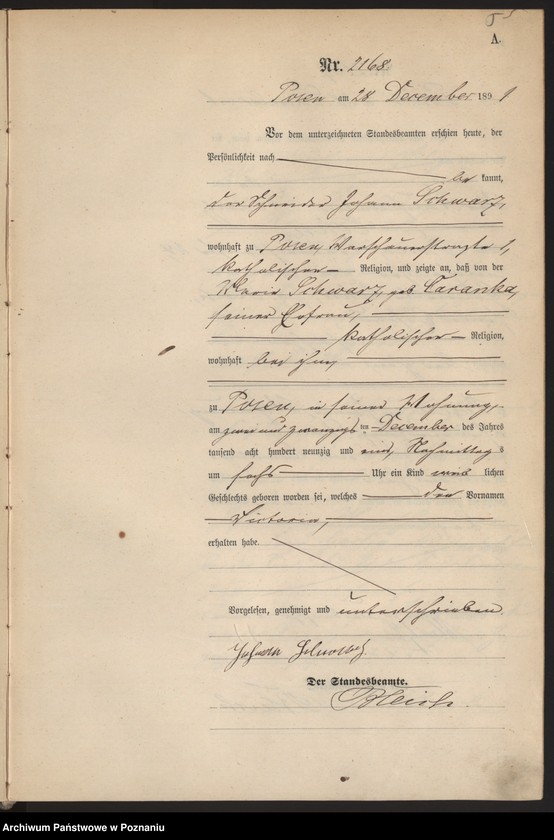 A.
Nr. 2168.
Posen am 28 December 1891
Vor dem unterzeichneten Standesbeamten erschien heute, der
Persönlichkeit nach
be kannt,
der Schneider Johann Schwarz,
wohnhaft zu Posen, Warschauerstraße 1,
katholischer Religion, und zeigte an, daß von der
Maria Schwarz, geb. Taranka,
seiner Ehefrau,
katholischer Religion,
wohnhaft bei ihm,
zu Posen, in seiner Wohnung,
am zwei und zwanzigs ten December des Jahres
tausend acht hundert neunzig und eins, Nachmittags
um sechs Uhr ein Kind weib lichen
Geschlechts geboren worden sei, welches den Vornamen
Victoria,
erhalten habe.
Vorgelesen, genehmigt und unterschrieben.
Johann Schwarz.
Der Standesbeamte.
Archiwum Państwowe w Poznaniu